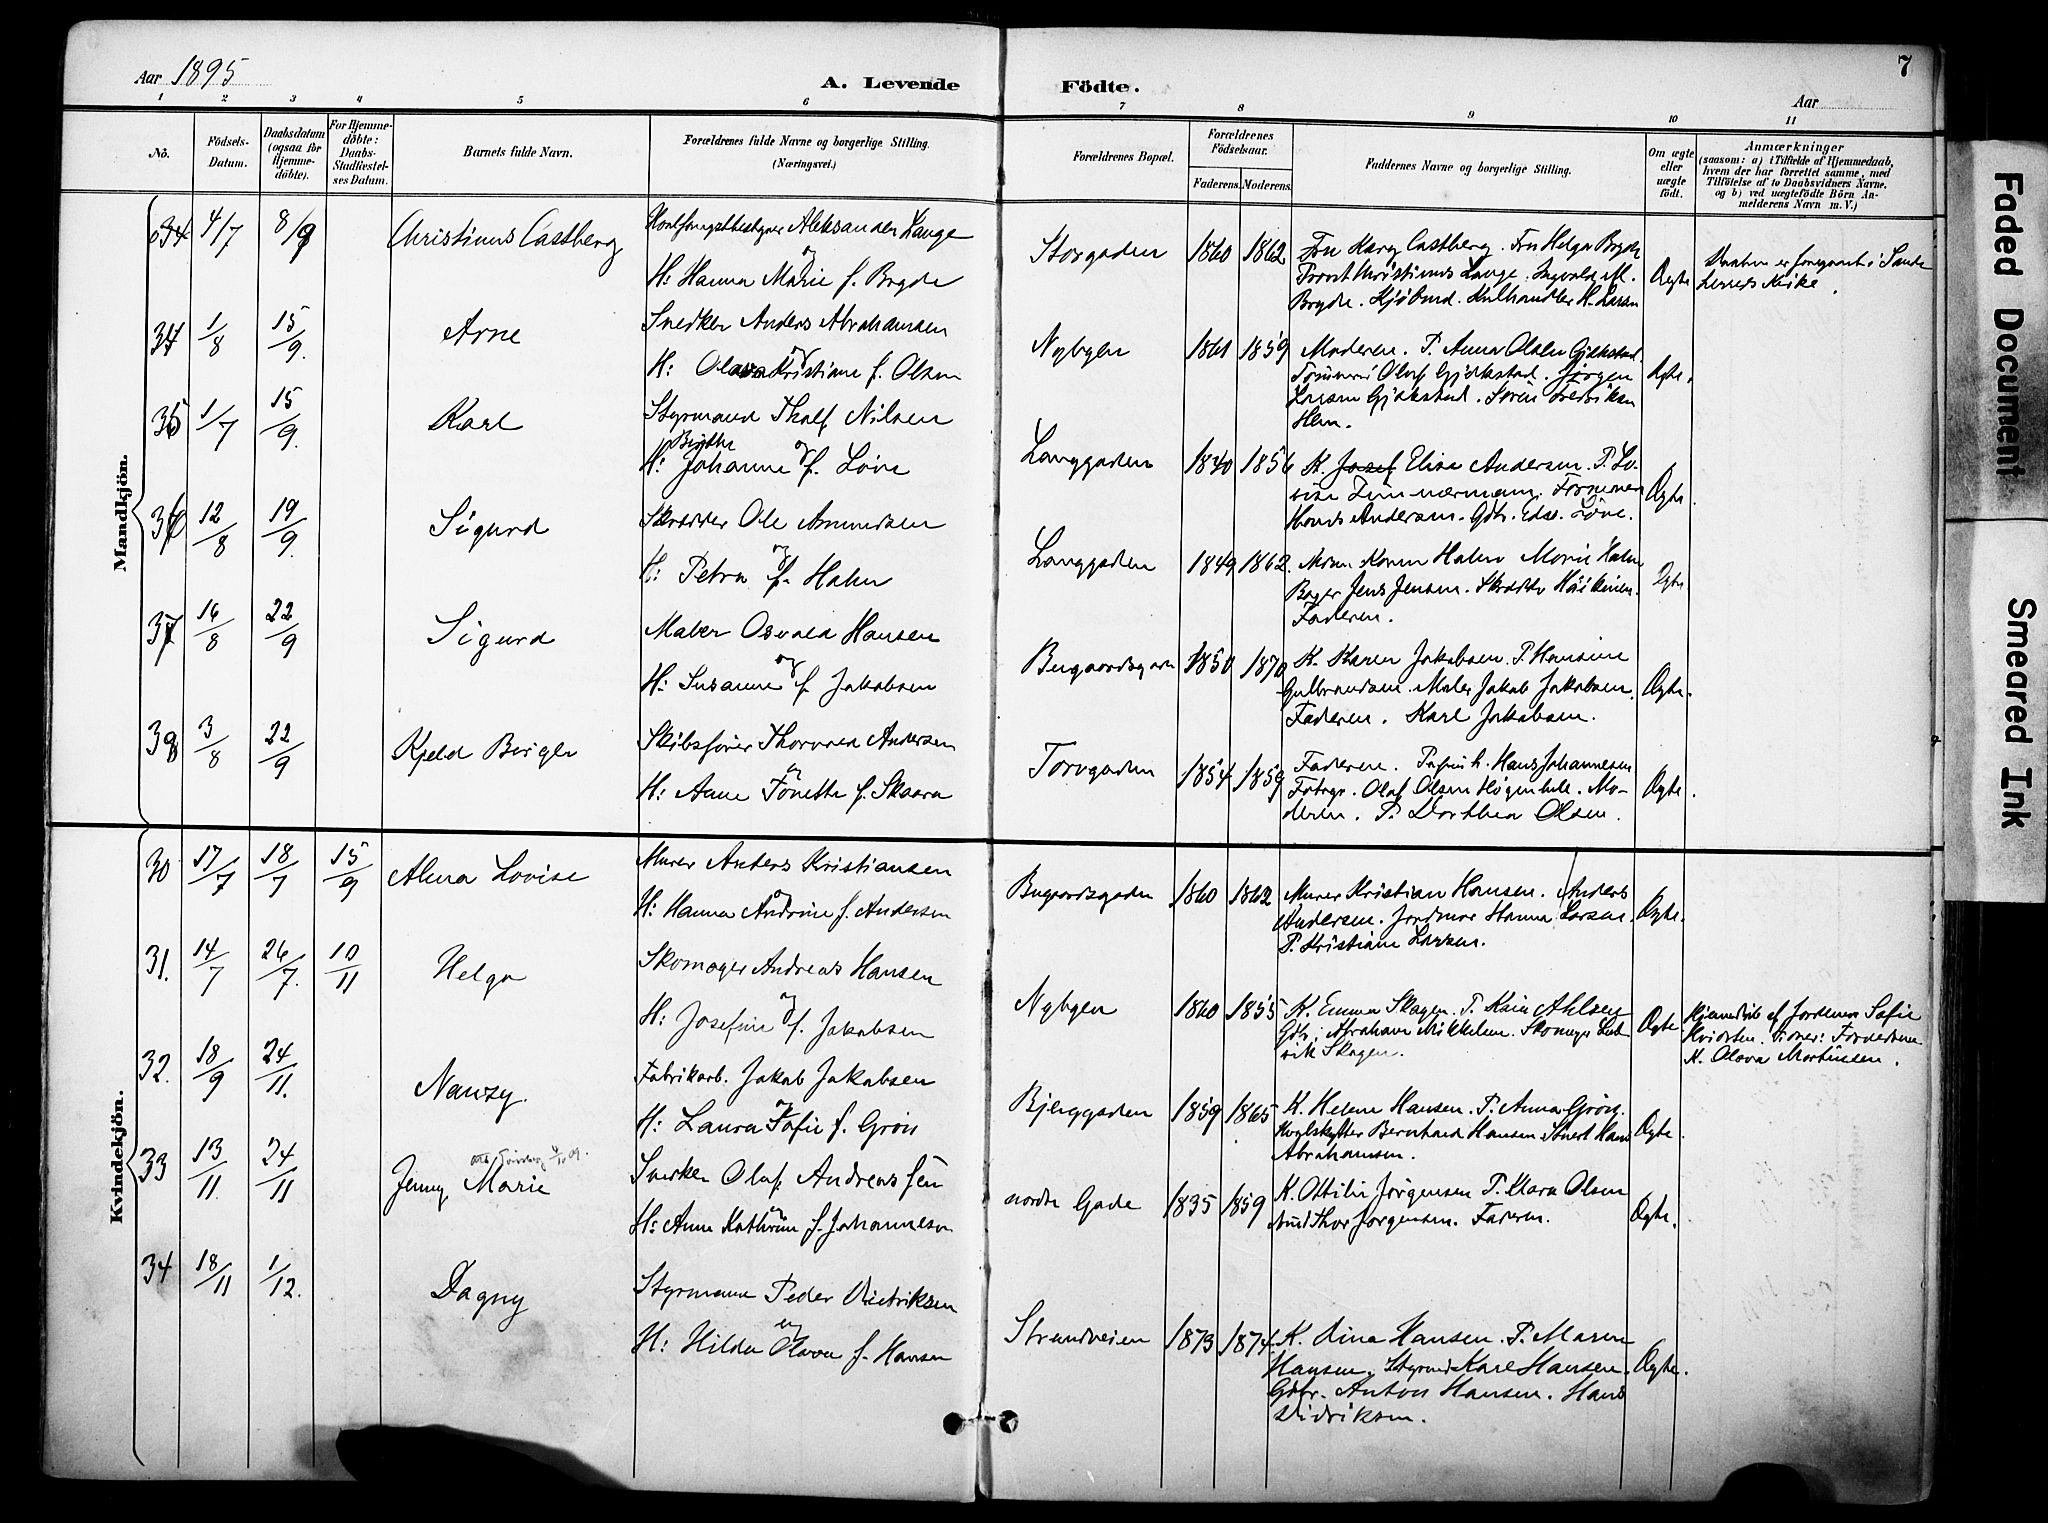 Aar 1895
A. Levende Födte.
7
Aar
1 2 3 4 5 6 7 8 9 10 11
Nô.
Födsels-Datum.
Daabsdatum (ogsaa for Hjemme-döbte).
For Hjemme-döbte: Daabs-Stadfæstel-ses Datum.
Barnets fulde Navn.
Forældrenes fulde Navne og borgerlige Stilling. (Næringsvei.)
Forældrenes Bopæl.
Forældrenes Födselsaar.
Faderens. Moderens.
Faddernes Navne og borgerlige Stilling.
Om ægte eller uægte födt.
Anmærkninger
(saasom: a) i Tilfælde af Hjemmedaab, hvem der har forrettet samme, med Tilföielse af to Daabsvidners Navne, og b) ved uægtefödte Börn An-melderens Navn m. V.)
Mandkjön.
34 4/7 8/9 Christinus Castberg
Aleksander Lange
og
H: Hanna Marie f. Bryde
Storgaden 1860 1862
Fru Karg Castberg. Fru Helga Bryde
Christinus Lange. Ingvald M.
Bryde. Kjöbmd. Kulhandler H. Larsen
Ægte
Daaben er foregaaet i Sande
Kirke.
34 1/8 15/9. Arne
Snedker Anders Abrahamsen
og
H: Olava Kristiane f. Olsen
Nybyen 1861 1859
Moderen. P. Anna Olsen Gjekstad.
Olaf Gjekstad. Jörgen
Larsen Gjekstad. Sören Fredriksen
Hem.
Ægte.
35 1/7 15/9. Karl
Styrmand Tholf Nilsen
Birgithe og
H: Johanne f. Löve
Langgaden 1840 1856
K. Josef Elise Andersen. P. Lo-
vise Timmermann.
Andersen. Gdbr. Edv. Löve.
Ægte
36 12/8 19/9. Sigurd
Skrædder Ole Amundsen
og
H: Petra f. Halm
Langgaden 1849 1862.
Karen Halm Marie Halm
Bager Jens Jensen. Skrædder
Faderen.
Ægte
37 16/8 22/9 Sigurd
Maler Osvald Hansen
og
H: Susanne f. Jakobsen
Bugaardsgaden 1850 1870
K. Karen Jakobsen. P. Hansine
Gulbrandsen. Maler Jakob Jakobsen.
Faderen. Karl Jakobsen.
Ægte.
38 3/8 22/9 Kjeld Birger
Skibsförer Thorvald Andersen
og
H: Anne Tönette f. Skaara
Torvgaden 1854 1859
Faderen. Hans Johannesen
Fotogr. Olaf Olsen Högenhole. Mo-
deren. P. Dorthea Olsen.
Ægte.
Kvindekjön.
30 17/7 18/7 15/9 Alma Lovise
Murer Anders Kristiansen
og
H: Hanna Andrine f. Andersen
Bugaardsgaden 1860 1862
Murer Kristian Hansen. Anders
Andersen. Jordmor Hanna Larsen.
P. Kristiane Larsen.
Ægte.
31. 14/7 26/7. 10/11 Helga
Skomager Andreas Hansen
og
H: Josefine f. Jakobsen
Nybyen 1860 1855
K. Emma Skagen. P. Karen Ahlsen
Gdbr. Abraham Mikkelsen. Skomager Lud-
vik Skagen.
Ægte
Hjemmedöbt af Jordemor Sofie
Kvidsten. Vidner: Forældrene
K. Olava Martinsen.
32. 18/9 24/11. Nanzy.
Fabrikarb. Jakob Jakobsen
og
H: Laura Sofie f. Grön
Bjerggaden 1859 1865
K. Helene Hansen. P. Anna Grön.
Hvalskytter Bernhard Hansen Stuert Hans
Abrahamsen.
Ægte.
33 13/11. 24/11 Jenny Marie
Snedker Olaf Andreassen
og
H: Anne Kathrine f. Johannesen
nordre Gade 1835 1859
K. Ottilie Jörgensen P. Klara Olsen
Thor Jörgensen. Faderen.
Ægte.
34 18/11 1/12. Dagny
Styrmand Peder Didriksen
og
H: Hilda Olava f. Hansen
Strandveien 1873 1874.
K. Lina Hansen. P. Maren
Hansen. Styrmd Karl Hansen.
Gdbr. Anton Hansen. Hans
Didriksen.
Ægte.
Faded Document
Smeared Ink